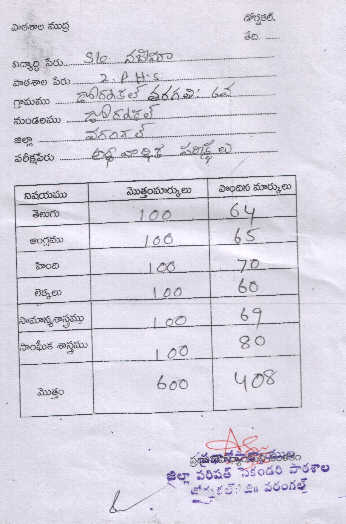 పాఠశాల ముద్ర
డోర్నకల్.
తేది. .....
విద్యార్థి పేరు. S/o
పాఠశాల పేరు Z.P.H.S
గ్రామము డోర్నకల్ తరగతి: 6వ
మండలము డోర్నకల్
జిల్లా వరంగల్
పరీక్షపేరు అర్ధ వార్షిక పరీక్షలు
విషయము మొత్తంమార్కులు పొందిన మార్కులు
తెలుగు 100 64
ఆంగ్లము 100 65
హింది 100 70
లెక్కలు 100 60
సామాన్యశాస్త్రము 100 69
సాంఘీక శాస్త్రము 100 80
మొత్తం 600 408
జిల్లా పరిషత్ సెకండరి పాఠశాల
డోర్నకల్, జి॥ వరంగల్